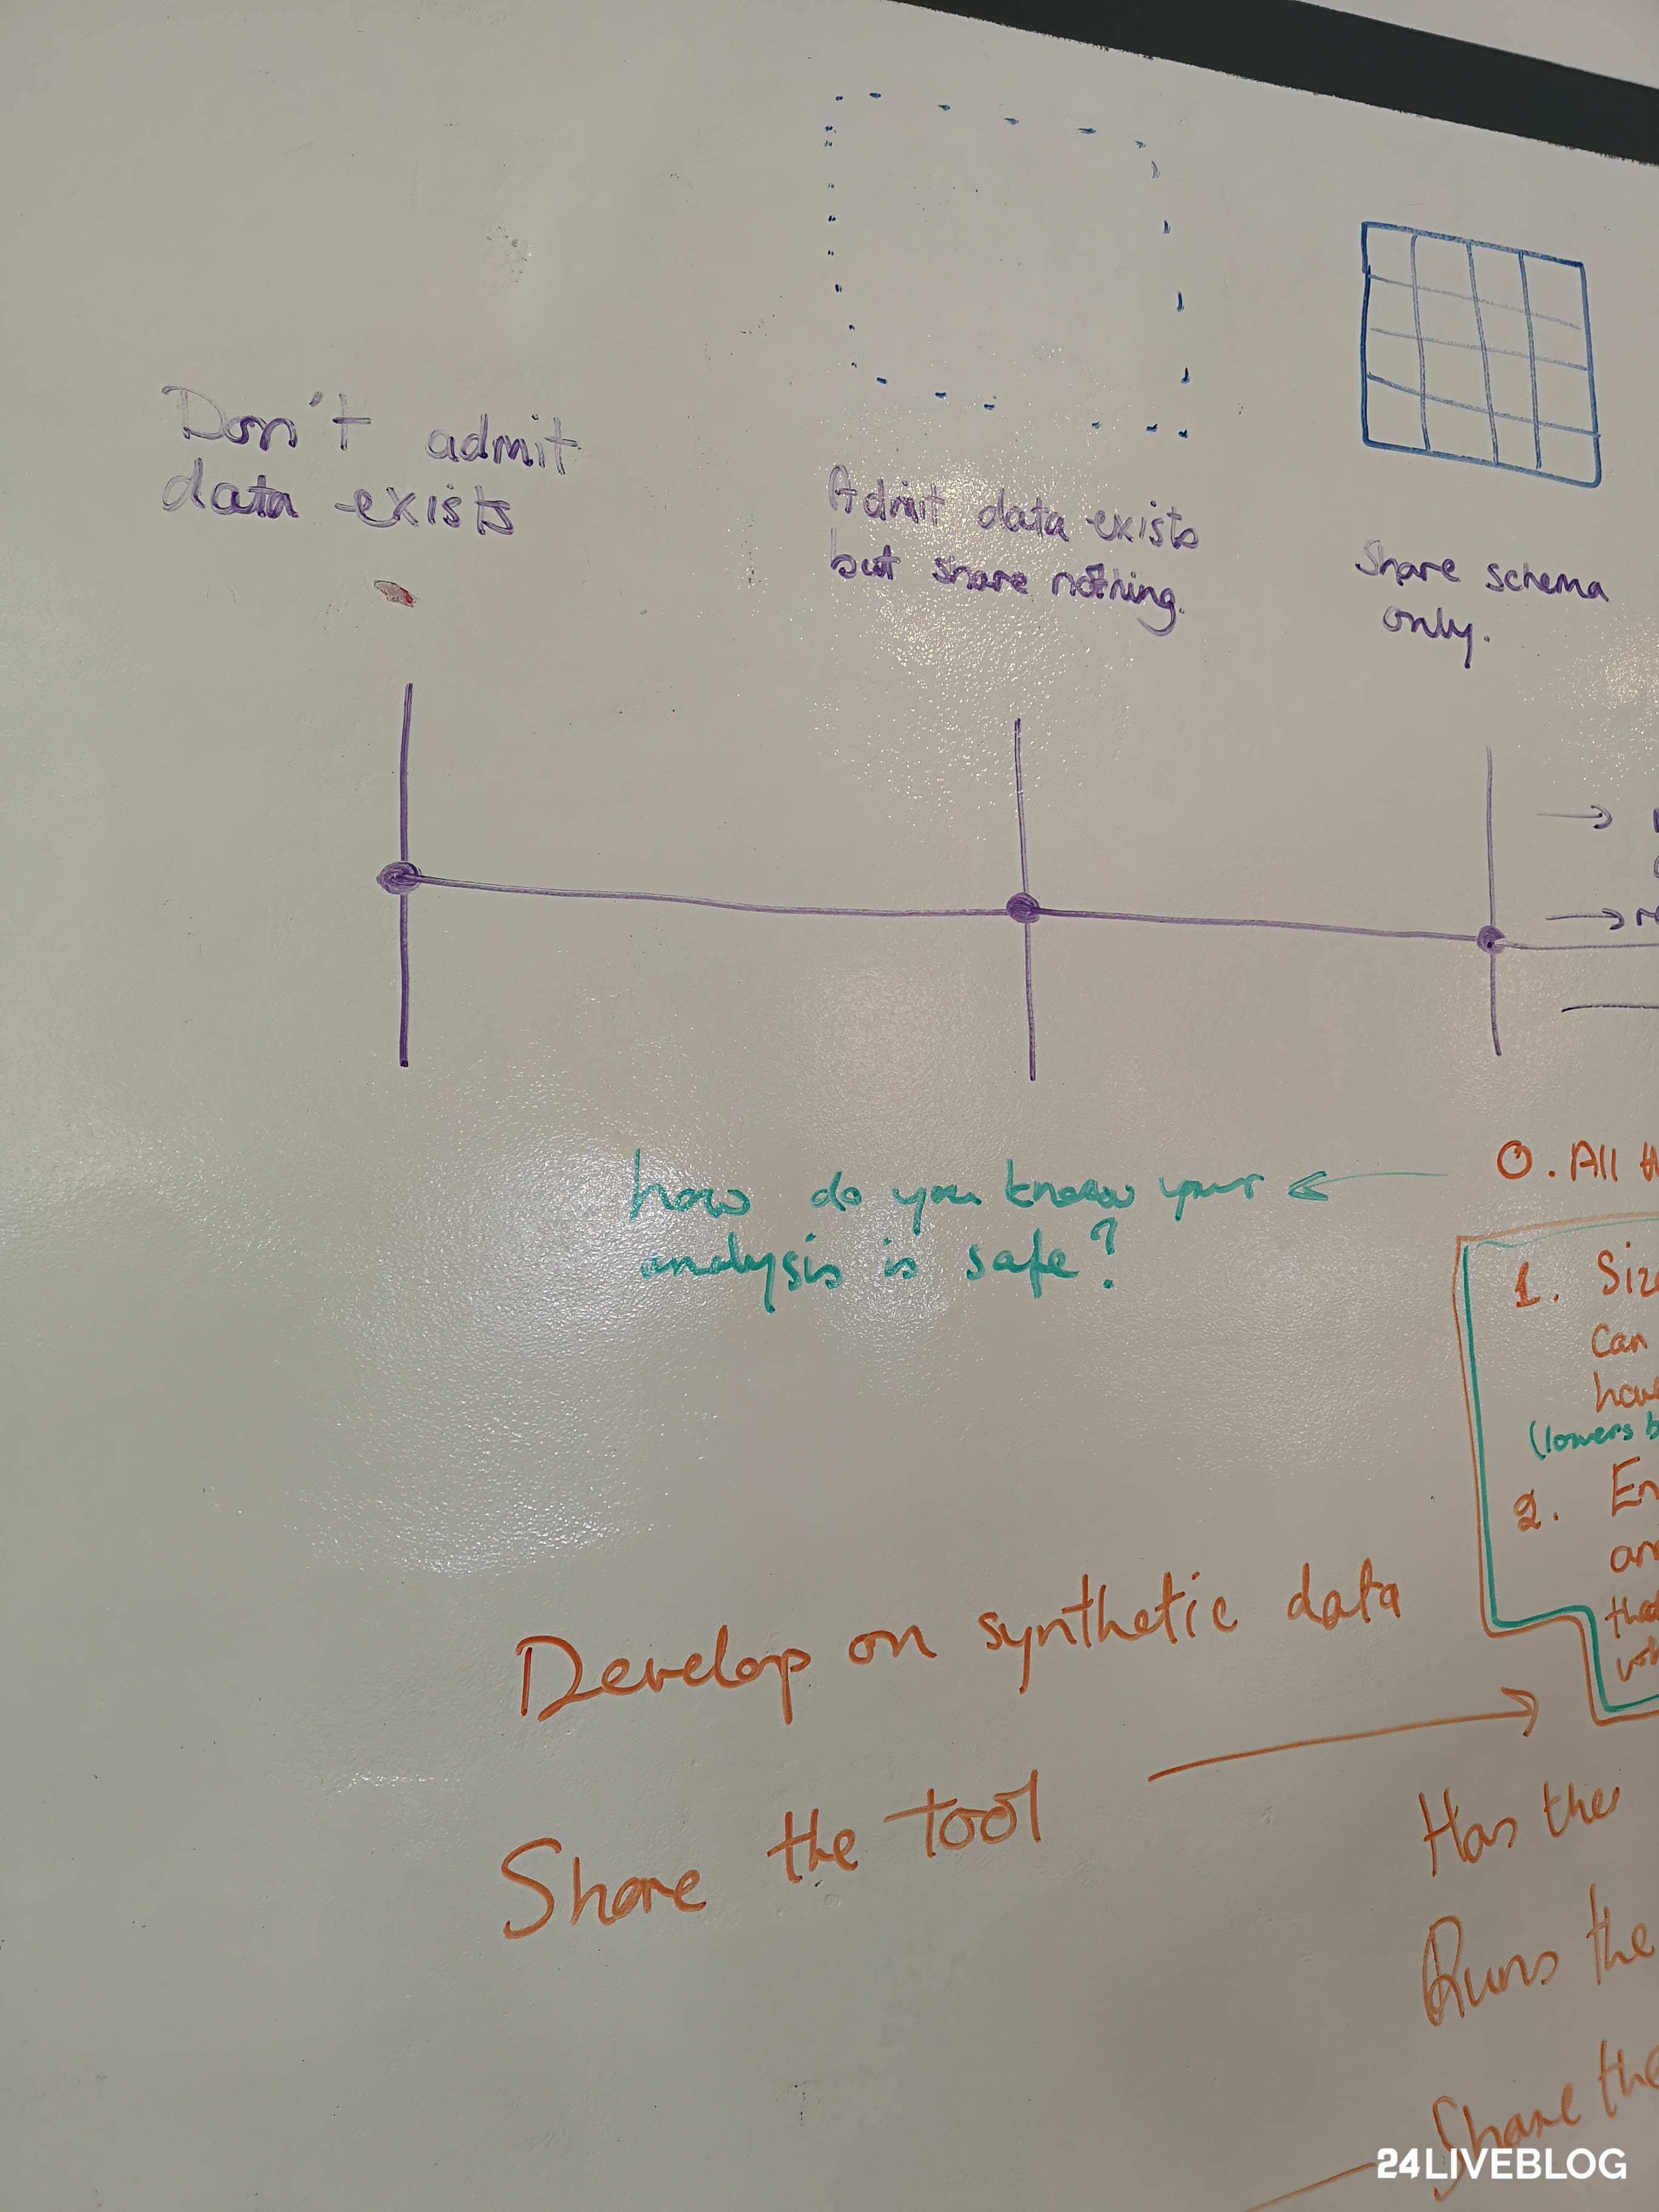 Don't admit
data exists
Admit data exists
but share nothing.
Share schema
only.
how do you know your
analysis is safe?
O. All
1. Size
Can
have
(lowers
2.
Develop on synthetic data
Share the tool
Has the
Runs the
Share the
24LIVEBLOG